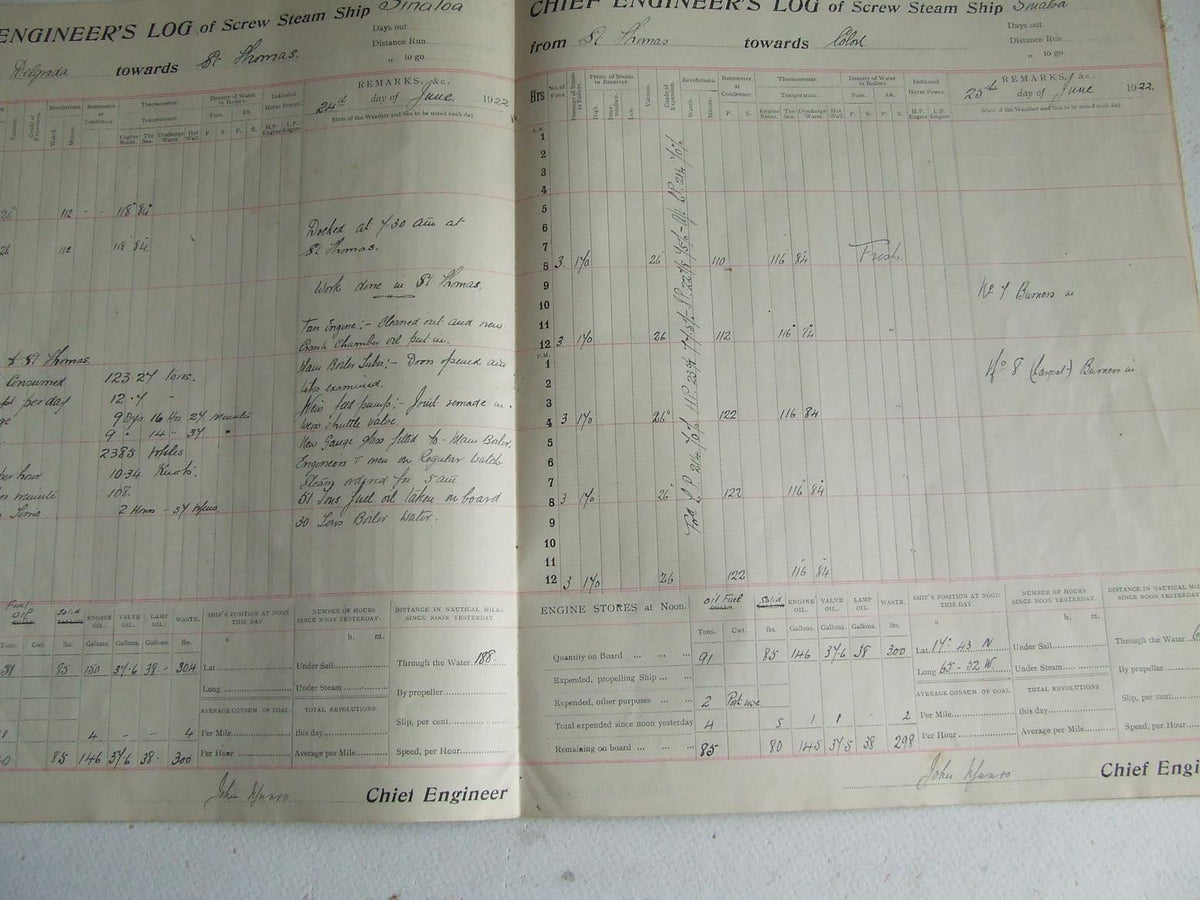 ENGINEER'S LOG of Screw Steam Ship Sinaloa
Days out
Distance Run
„ to go
Delgada towards St Thomas.
REMARKS, &c.
24th day of June 1922
State of the Weather and Sea to be noted each day
Vacuum. Grade of Expansion. Revolutions. Barometer at Condenser. Thermometer. Density of Water in Boilers. Indicated Horse Power.
Watch. Minute. Temperature. Fore. Aft.
Engine Room. The Sea. Discharge Water. Hot Well. P. S. P. S. H.P. Engine L.P. Engine
26 112 118° 84°
26 112 118 84
Docked at 7.30 am at
St Thomas.
Work done in St Thomas.
Fan Engine:- Cleaned out and new
Crank Chamber oil put in.
Main Boiler Tubes:- Doors opened and
tubes examined.
Weirs feed pump:- Joint remade in
Weirs shuttle valve.
New Gauge glass fitted to Main Boiler.
Engineers & men on Regular Watch
Steam ordered for 5 am
51 Tons fuel oil taken on board
30 Tons Boiler Water.
St Thomas.
Consumed 123.27 Tons.
per day 12.7 "
9 Dys 16 Hrs 27 minutes
9 " 14 - 37 "
2385 Miles
per hour 10.34 Knots.
minute 108.
2 Hours - 37 Mins
Fuel Oil Solid ENGINE OIL. VALVE OIL. LAMP OIL. WASTE.
Tons. Cwt. lbs. Gallons. Gallons. Gallons. lbs.
85 150 376 38 304
4 - - 4
85 146 376 38 300
SHIP'S POSITION AT NOON THIS DAY.
Lat
Long
AVERAGE CONSUM. OF COAL.
Per Mile
Per Hour
NUMBER OF HOURS SINCE NOON YESTERDAY.
h. m.
Under Sail
Under Steam
TOTAL REVOLUTIONS
this day
Average per Mile
DISTANCE IN NAUTICAL MILES SINCE NOON YESTERDAY
Through the Water 188
By propeller
Slip, per cent.
Speed, per Hour
John Munro Chief Engineer
CHIEF ENGINEER'S LOG of Screw Steam Ship Sinaloa
Days out
Distance Run
„ to go
from St Thomas towards Colon
REMARKS, &c.
25th day of June 1922.
State of the Weather and Sea to be noted each day
Hrs No. of Fires Pressure of Steam Pres. of Steam in Receiver. Vacuum. Grade of Expansion. Revolutions. Barometer at Condenser. Thermometer. Density of Water in Boilers. Indicated Horse Power.
High. Low Watch. Minute. P. S. Temperature. Fore. Aft.
Engine Room. The Sea. Discharge Water. Hot Well P. S. P. S. H.P. Engine L.P. Engine
A.M.
1
2
3
4
5
6
7
8 3 170 26 110 116 84 Fresh
9
10 No 7 Burners in
11
12 3 170 26 112 116 84
P.M.
1 No 8 (Largest) Burners in
2
3
4 3 170 26 122 116 84
5
6
7
8 3 170 26 122 116 84
9
10
11
12 3 170 26 122 116 84
ENGINE STORES at Noon.
Oil Fuel Solid ENGINE OIL. VALVE OIL. LAMP OIL WASTE.
Tons. Cwt. lbs. Gallons. Gallons. Gallons. lbs.
Quantity on Board 91 85 146 376 38 300
Expended, propelling Ship
Expended, other purposes 2 Port use
Total expended since noon yesterday 4 5 1 1 - 2
Remaining on board 85 80 145 375 38 298
SHIP'S POSITION AT NOON THIS DAY.
Lat. 17° 43 N
Long 65 - 52 W
AVERAGE CONSUM. OF COAL
Per Mile
Per Hour
NUMBER OF HOURS SINCE NOON YESTERDAY.
h. m.
Under Sail
Under Steam
TOTAL REVOLUTIONS
this day
Average per Mile
DISTANCE IN NAUTICAL MILES SINCE NOON YESTERDAY
Through the Water
By propeller
Slip, per cent.
Speed, per Hour
John Munro Chief Engi